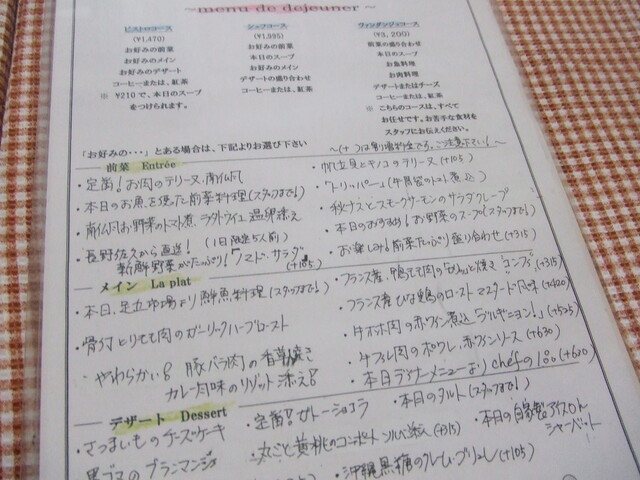 ～menu de dejeuner～
ビストロコース
(¥1,470)
お好みの前菜
お好みのメイン
お好みのデザート
コーヒーまたは、紅茶
※ ¥210で、本日のスープ
をつけられます。
シェフコース
(¥1,995)
お好みの前菜
本日のスープ
お好みのメイン
デザートの盛り合わせ
コーヒーまたは、紅茶
ヴァンダンジュコース
(¥3,200)
前菜の盛り合わせ
本日のスープ
お魚料理
お肉料理
デザートまたはチーズ
コーヒーまたは、紅茶
※ こちらのコースは、すべて
お任せです。お苦手な食材を
スタッフにお伝えください。
「お好みの・・・」とある場合は、下記よりお選び下さい
～(+ )は割増料金です。ご注意下さい!～
前菜 Entrée
・定番！お肉のテリーヌ、南仏風
・本日のお魚を使った前菜料理(スタッフまで!)
・南仏風お野菜のトマト煮、ラタトゥイユ 温卵添え
・長野佐久から直送！(1日限定5人前)
新鮮野菜がたっぷり！アマド・サラダ(+105)
・帆立貝とキノコのテリーヌ(+105)
・トリッパー(牛胃袋のトマト煮込)
・秋ナスとスモークサーモンのサラダクレープ
・本日のおすすめ！お野菜のスープ(スタッフまで)
・お楽しみ！前菜たっぷり盛り合わせ(+315)
メイン La plat
・本日、足立市場より鮮魚料理(スタッフまで!)
・骨付とりもも肉のガーリックハーブロースト
・やわらかい！豚バラ肉の香草焼き
カレー風味のリゾット添え！
・フランス産、鴨もも肉のせんい焼き コンフィ(+315)
・フランス産ひな鶏のロースト マスタード風味(+420)
・牛ホホ肉の赤ワイン煮込「ブルギニョン」(+525)
・牛フィレ肉のポワレ、赤ワインソース(+630)
・本日ディナーメニューより chefの1品(+630)
デザート Dessert
・さつまいものチーズケーキ
・黒ゴマのブランマンジェ
・定番！ガトーショコラ
・本日のタルト(スタッフまで!)
・丸ごと黄桃のコンポート ソルベ添え(+315)
・本日の自家製アイスor
シャーベット
・沖縄黒糖のクレームブリュレ(+105)